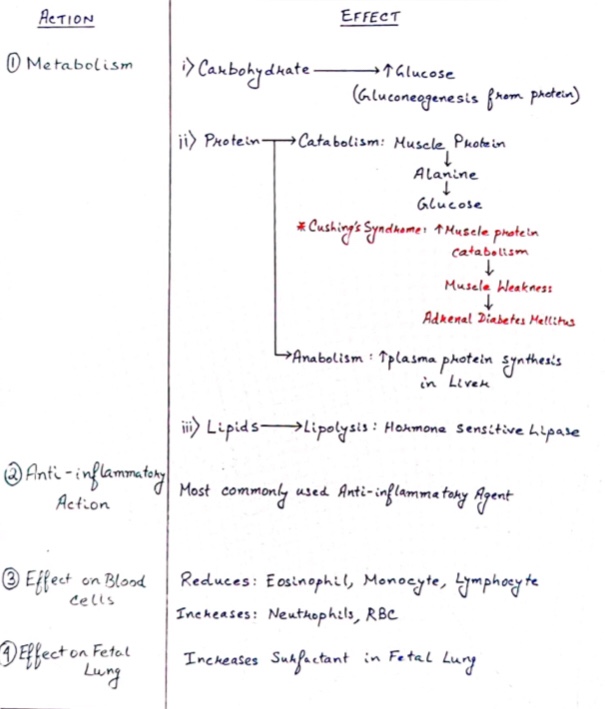 ACTION
EFFECT
① Metabolism
i) Carbohydrate → ↑Glucose
(Gluconeogenesis from protein)
ii) Protein → Catabolism: Muscle Protein
↓
Alanine
↓
Glucose
* Cushing's Syndrome: ↑Muscle protein
catabolism
↓
Muscle Weakness
↓
Adrenal Diabetes Mellitus
→ Anabolism: ↑plasma protein synthesis
in Liver
iii) Lipids → Lipolysis: Hormone Sensitive Lipase
② Anti-inflammatory
Action
Most commonly used Anti-inflammatory Agent
③ Effect on Blood
cells
Reduces: Eosinophil, Monocyte, Lymphocyte
Increases: Neutrophils, RBC
④ Effect on Fetal
Lung
Increases Surfactant in Fetal Lung